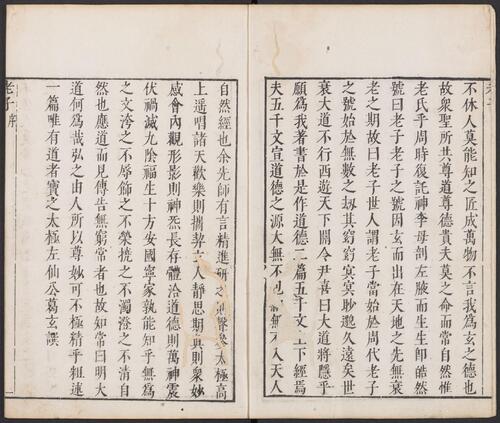 不休人莫能知之匠成萬物不言我為玄之德也
故衆聖所共尊道尊德貴夫莫之命而常自然惟
老氏乎周時復託神李母剖左腋而生生卽皓然
號曰老子老子之號因玄而出在天地之先無衰
老之期故曰老子世人謂老子當始於周代老子
之號始於無數之刼其窈窈冥冥眇邈久遠矣世
衰大道不行西遊天下關令尹喜曰大道將隱乎
願爲我著書於是作道德二篇五千文上下經焉
夫五千文宣道德之源大無不包細無不入天人
自然經也余先師有言精進研之則聲參太極高
上遥唱諸天歡樂則攜契玄人靜思期眞則衆妙
感會內觀形影則神炁長存體洽道德則萬神震
伏禍滅九陰福生十方安國寧家孰能知乎無爲
之文涬之不辱飾之不榮撓之不濁澄之不清自
然也應道而見傳告無窮常者也故知常曰明大
道何爲哉弘之由人所以尊妙可不極精乎粗速
一篇唯有道者寶之太極左仙公葛玄譔
老子序
一